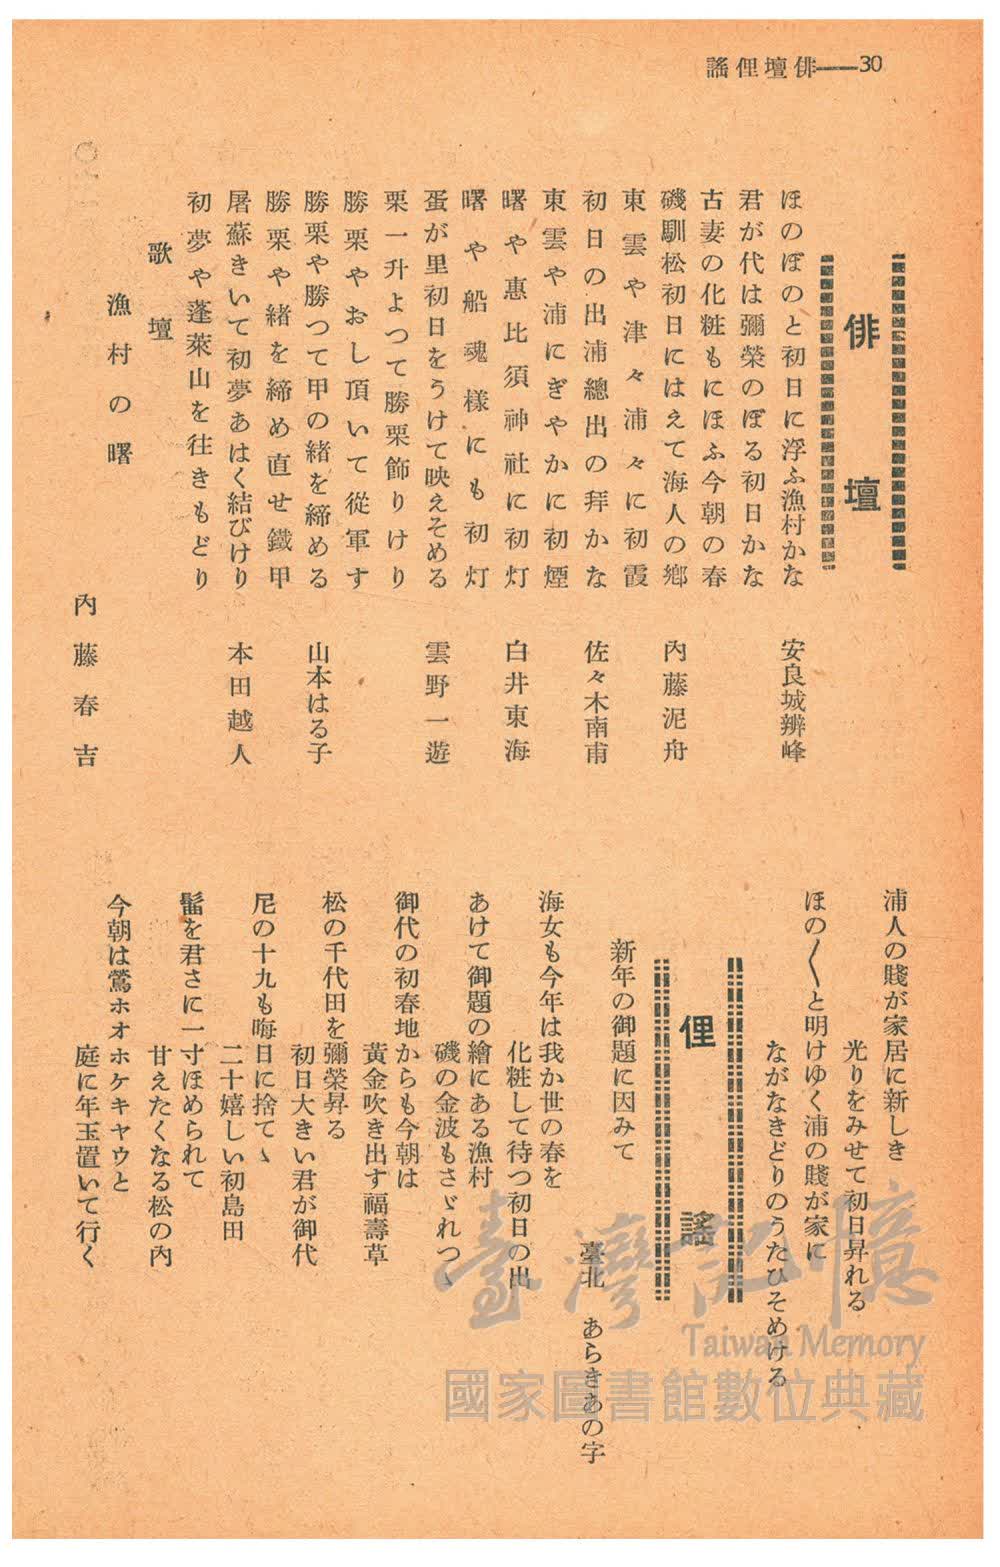 30——俳壇俚謠
俳壇
ほのぼのと初日に浮ふ漁村かな
安良城辨峰
君が代は彌榮のぼる初日かな
古妻の化粧もにほふ今朝の春
磯馴松初日にはえて海人の鄕
內藤泥舟
東雲や津々浦々に初霞
初日の出浦總出の拜かな
佐々木南甫
東雲や浦にぎやかに初煙
曙や惠比須神社に初灯
白井東海
曙や船魂樣にも初灯
蛋が里初日をうけて映えそめる
雲野一遊
栗一升よつて勝栗飾りけり
勝栗やおし頂いて從軍す
勝栗や勝つて甲の緒を締める
山本はる子
勝栗や緒を締め直せ鐵甲
屠蘇きいて初夢あはく結びけり
本田越人
初夢や蓬萊山を往きもどり
歌壇
漁村の曙
內藤春吉
浦人の賤が家居に新しき
光りをみせて初日昇れる
ほの〱と明けゆく浦の賤が家に
ながなきどりのうたひそめける
俚謠
新年の御題に因みて
臺北 あらきあの字
海女も今年は我か世の春を
化粧して待つ初日の出
あけて御題の繪にある漁村
磯の金波もさゞれつゝ
御代の初春地からも今朝は
黃金吹き出す福壽草
松の千代田を彌榮昇る
初日大きい君が御代
尼の十九も晦日に捨てゝ
二十嬉しい初島田
髷を君さに一寸ほめられて
甘えたくなる松の內
今朝は鶯ホオホケキヤウと
庭に年玉置いて行く
臺灣記憶
Taiwan Memory
國家圖書館數位典藏